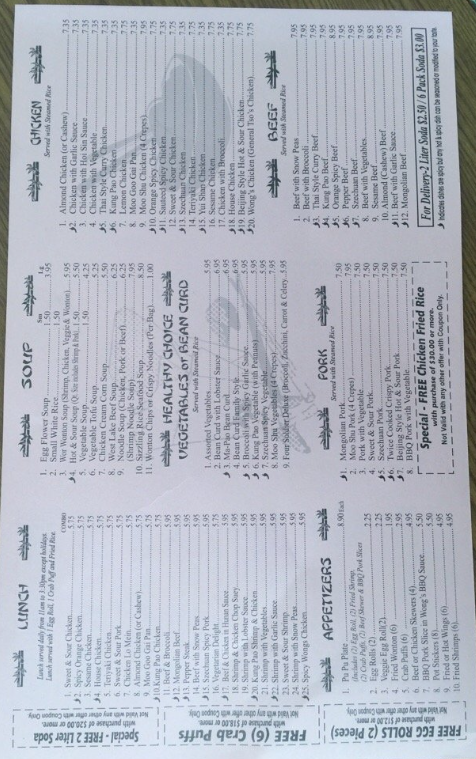 Special - FREE 2 Liter Soda
with purchase of $26.00 or more.
Not Valid with any other offer with Coupon Only.
FREE (6) Crab Puffs
with purchase of $18.00 or more.
Not Valid any other with Coupon Only.
FREE EGG ROLLS (2 Pieces)
with purchase of $12.50 or more.
Not Valid with any other offer with Coupon Only.
LUNCH
Lunch served daily from 11am to 3:30pm except holidays
Lunch served with 1 Egg Roll, 1 Crab Puff and Fried Rice.
COMBO
1. Sweet & Sour Chicken 5.75
2. Spicy Orange Chicken 5.75
3. Sesame Chicken 5.75
4. Hunan Chicken 5.75
5. Teriyaki Chicken 5.75
6. Sweet & Sour Pork 5.75
7. Chicken Lo Mein 5.75
8. Almond Chicken (or Cashew) 5.75
9. Moo Goo Gai Pan 5.75
10. Kung Pao Chicken 5.75
11. Beef & Broccoli 5.95
12. Mongolian Beef 5.95
13. Pepper Steak 5.95
14. Beef with Snow Peas 5.95
15. Szechuan Spicy Pork 5.95
16. Vegetarian Delight
17. Beef & Chicken in Hunan Sauce 5.95
18. Shrimp & Chicken Chop Suey 5.95
19. Shrimp with Lobster Sauce 5.95
20. Kung Pao Shrimp & Chicken 5.95
21. Shrimp with Vegetables 5.95
22. Shrimp with Garlic Sauce 5.95
23. Sweet & Sour Shrimp 5.95
24. Shrimp with Snow Peas 5.95
25. Spicy Wings Chicken 5.95
APPETIZERS
1. Pu Pu Plate 8.90 Each
(2) Crab Puffs, (2) Beef Skewer & BBQ Pork Slices
2. Egg Rolls (2) 2.25
3. Veggie Egg Roll(2) 2.25
4. Fried Wonton (6) 3.95
5. Crab Puffs (6) 4.95
6. Beef or Chicken Skewers (4) 4.95
7. BBQ Pork Slice in Wong's BBQ Sauce 5.50
8. Pot Stickers (8) 5.50
9. Fried or Hot Wings (6) 4.95
10. Fried Shrimps (6) 4.95
SOUP
Sm Lg
1. Egg Flower Soup 1.50 3.95
2. Small White Rice 1.50
3. Wor Wonton Soup (Shrimp, Chicken, Veggie & Wonton) 5.95
4. Hot & Sour Soup 1.50 5.50
5. Vegetable Soup 1.50 4.25
6. Vegetable Tofu Soup 5.25
7. Chicken Cream Corn Soup 5.50
8. West Lake Beef Soup 6.25
9. Noodle Soup (Chicken, Pork or Beef) 6.25
(Shrimp Noodle Soup) 7.95
10. Sizzling Rice Seafood Soup 8.50
11. Wonton Chips or Crispy Noodles (Per Bag) 1.00
HEALTHY CHOICE
VEGETABLES OF BEAN CURD
Served with Steamed Rice
1. Assorted Vegetables 5.95
2. Bean Curd with Lobster Sauce 6.95
3. Ma-Pao Bean Curd 5.95
4. Bean Curd Family Style 6.95
5. Broccoli with Spicy Garlic Sauce 5.95
6. Kung Pao Vegetable (with Peanuts) 5.95
7. Szechuan Style Vegetables 5.95
8. Moo Shu Vegetables (4 Crepes) 7.95
9. Four Soldier Deluxe (Broccoli, Zucchini, Carrot & Celery 5.95
PORK
Served with Steamed Rice
1. Mongolian Pork 7.50
2. Moo Shu Pork (4 Crepes) 7.95
3. Pork with Vegetable 7.50
4. Sweet & Sour Pork 7.50
5. Szechuan Pork 7.50
6. Twice Cooked Crispy Pork 7.50
7. Beijing Style Hot & Sour Pork 7.50
8. BBQ Pork with Vegetable 7.50
Special - FREE Chicken Fried Rice
with purchase of $30.00 or more.
Not Valid with any other offer with Coupon Only.
CHICKEN
Served with Steamed Rice
1. Almond Chicken (or Cashew) 7.35
2. Chicken with Garlic Sauce 7.35
3. Chicken with Hoi Sin Sauce 7.35
4. Chicken with Vegetable 7.35
5. Thai Style Curry Chicken 7.35
6. Kung Pao Chicken 7.35
7. Lemon Chicken 7.35
8. Moo Goo Gai Pan 7.35
9. Moo Shu Chicken (4 Crepes) 7.95
10. Orange Spicy Chicken 7.35
11. Sauteed Spicy Chicken 7.35
12. Sweet & Sour Chicken 7.35
13. Szechuan Chicken 7.35
14. Teriyaki Chicken 7.35
15. Yui Shan Chicken 7.35
16. Sesame Chicken 7.35
17. Chicken with Broccoli 7.35
18. House Chicken 7.35
19. Beijing Style Hot & Sour Chicken 7.75
20. Wong's Chicken (General Tso's Chicken) 7.75
BEEF
Served with Steamed Rice
1. Beef with Snow Peas 7.95
2. Beef with Broccoli 7.95
3. Thai Style Curry Beef 7.95
4. Kung Pao Beef 7.95
5. Orange Spicy Beef 8.95
6. Pepper Beef 7.95
7. Szechuan Beef 7.95
8. Beef with Vegetables 7.95
9. Sesame Beef 8.95
10. Almond (Cashews) Beef 7.95
11. Beef with Garlic Sauce 7.95
12. Mongolian Beef 7.95
For Delivery-2 Liter Soda $2.50 / 6 Pack Soda $3.00
Indicates dishes are spicy but any hot & spicy dish can be seasoned or modified to your taste